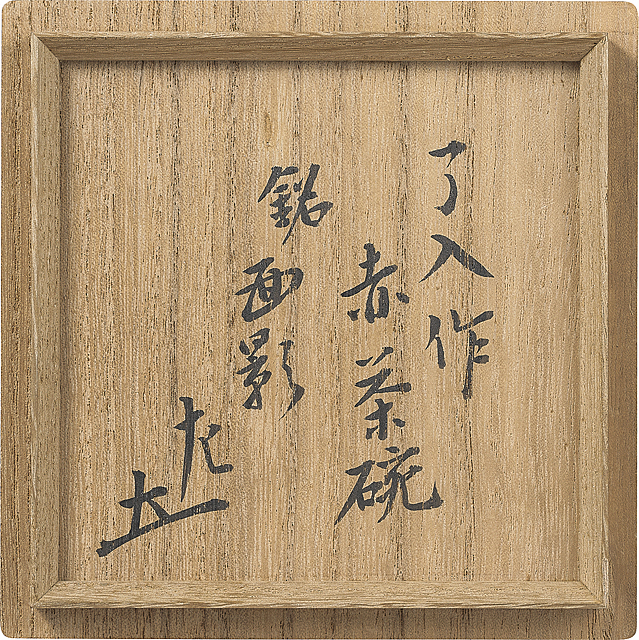 了入作
赤茶碗
銘面影
左